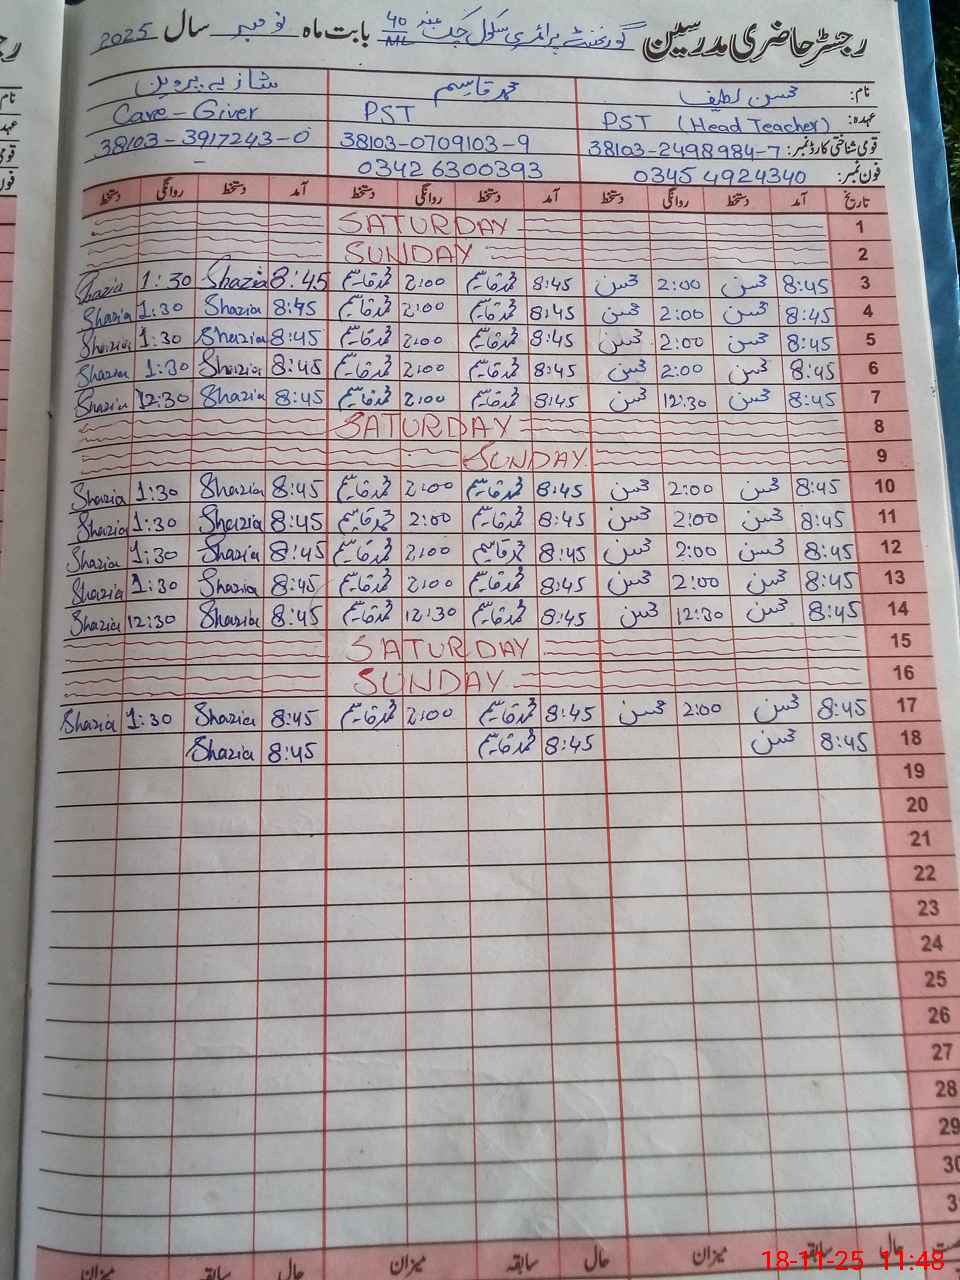 رجسٹر حاضری مدرسین گورنمنٹ پرائمری سکول چک 40 ML بابت ماہ نومبر سال 2025
نام: محسن لطیف محمد قاسم شازیہ پروین
عہدہ: PST (Head Teacher) PST Care-Giver
قومی شناختی کارڈ نمبر: 38103-2498984-7 38103-0709103-9 38103-3917243-0
فون نمبر: 0345 4924340 0342 6300393 –
تاریخ آمد دستخط روانگی دستخط آمد دستخط روانگی دستخط آمد دستخط روانگی دستخط
1 SATURDAY
2 SUNDAY
3 8:45 محسن 2:00 محسن 8:45 محمد قاسم 2:00 محمد قاسم 8:45 Shazia 1:30 Shazia
4 8:45 محسن 2:00 محسن 8:45 محمد قاسم 2:00 محمد قاسم 8:45 Shazia 1:30 Shazia
5 8:45 محسن 2:00 محسن 8:45 محمد قاسم 2:00 محمد قاسم 8:45 Shazia 1:30 Shazia
6 8:45 محسن 2:00 محسن 8:45 محمد قاسم 2:00 محمد قاسم 8:45 Shazia 1:30 Shazia
7 8:45 محسن 12:30 محسن 8:45 محمد قاسم 2:00 محمد قاسم 8:45 Shazia 12:30 Shazia
8 SATURDAY
9 SUNDAY
10 8:45 محسن 2:00 محسن 8:45 محمد قاسم 2:00 محمد قاسم 8:45 Shazia 1:30 Shazia
11 8:45 محسن 2:00 محسن 8:45 محمد قاسم 2:00 محمد قاسم 8:45 Shazia 1:30 Shazia
12 8:45 محسن 2:00 محسن 8:45 محمد قاسم 2:00 محمد قاسم 8:45 Shazia 1:30 Shazia
13 8:45 محسن 2:00 محسن 8:45 محمد قاسم 2:00 محمد قاسم 8:45 Shazia 1:30 Shazia
14 8:45 محسن 12:30 محسن 8:45 محمد قاسم 12:30 محمد قاسم 8:45 Shazia 12:30 Shazia
15 SATURDAY
16 SUNDAY
17 8:45 محسن 2:00 محسن 8:45 محمد قاسم 2:00 محمد قاسم 8:45 Shazia 1:30 Shazia
18 8:45 محسن 8:45 محمد قاسم 8:45 Shazia
19
20
21
22
23
24
25
26
27
28
29
30
3
حال سابقہ میزان حال سابقہ میزان حال سابقہ میزان
18-11-25 11:48